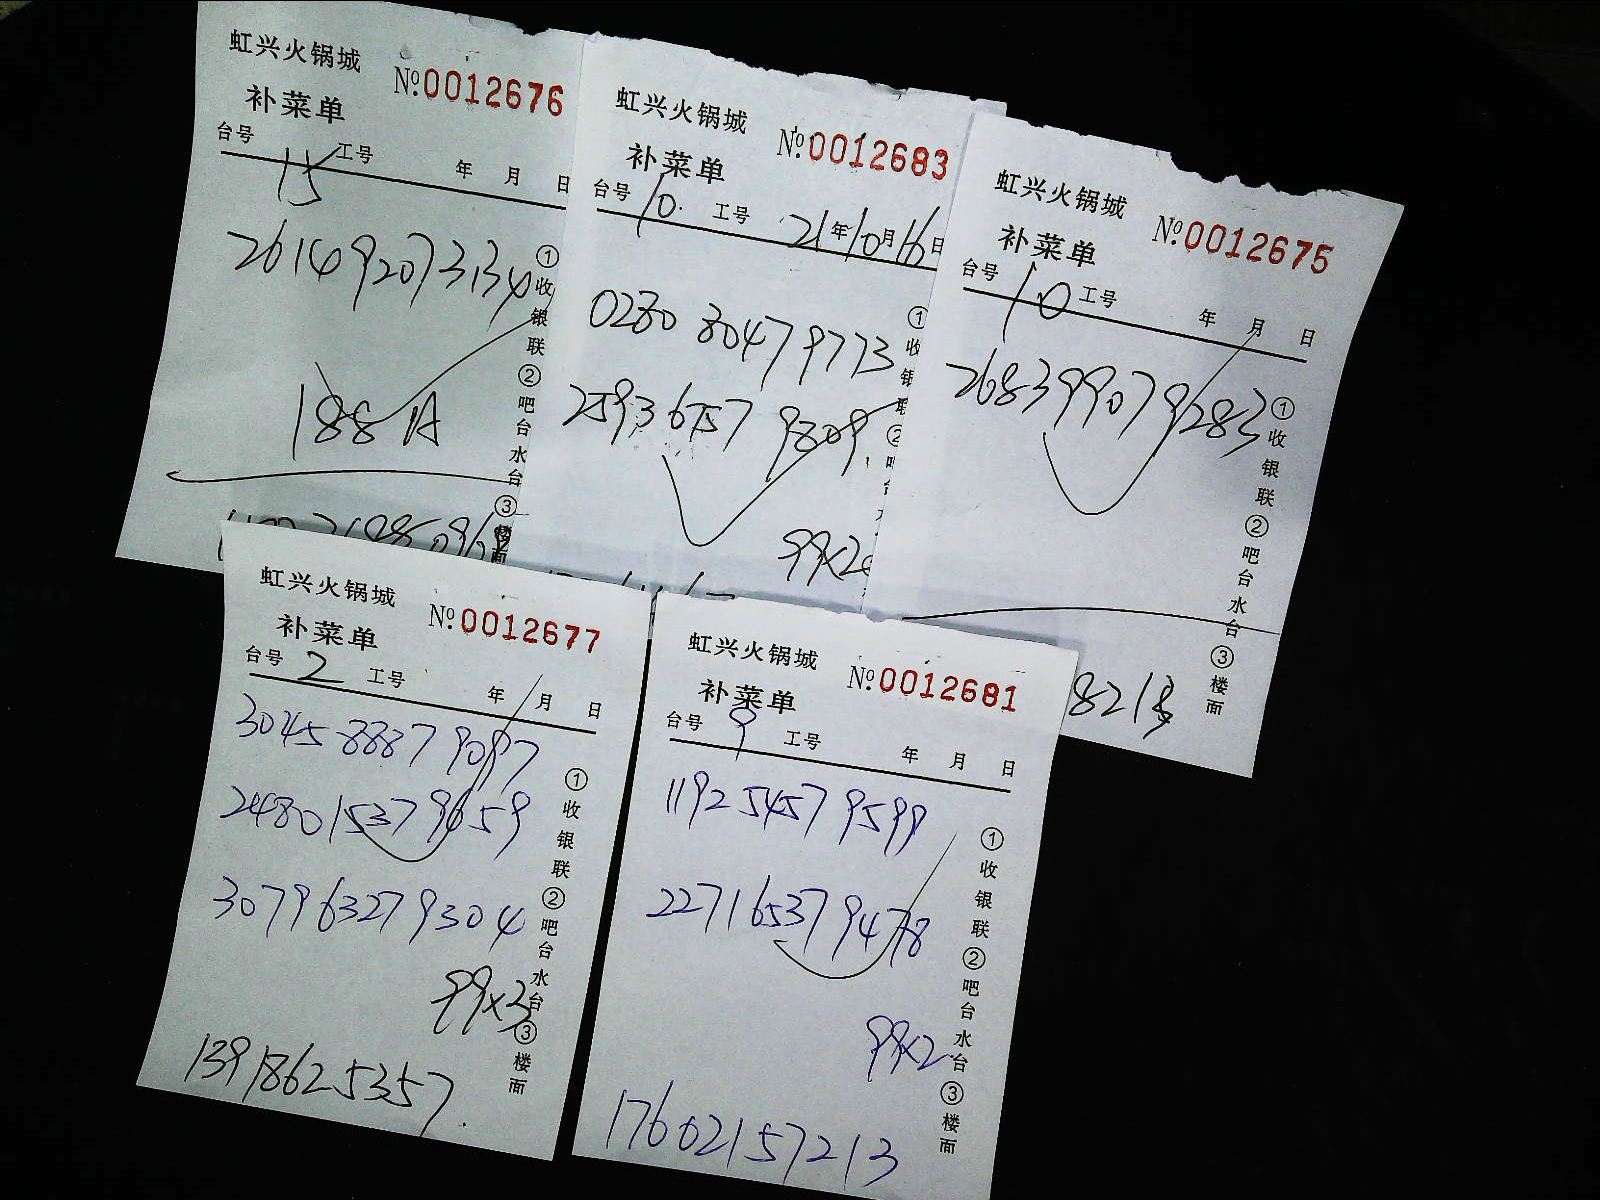 虹兴火锅城 №0012676
补菜单
台号 15 工号 年 月 日
261492073134
188 A
①收银联②吧台水台③楼面
虹兴火锅城 №0012683
补菜单
台号 10. 工号 21年10月16日
0280 80479773
25936757 9809
99x2
①收银联②吧台
虹兴火锅城 №0012675
补菜单
台号 10 工号 年 月 日
268399079283
8213
①收银联②吧台水台③楼面
虹兴火锅城 №0012677
补菜单
台号 2 工号 年 月 日
304588879097
248015379659
307963279304
99x3
13918625357
①收银联②吧台水台③楼面
虹兴火锅城 №0012681
补菜单
台号 9 工号 年 月 日
119254579599
227165379478
99x2
17602157213
①收银联②吧台水台③楼面